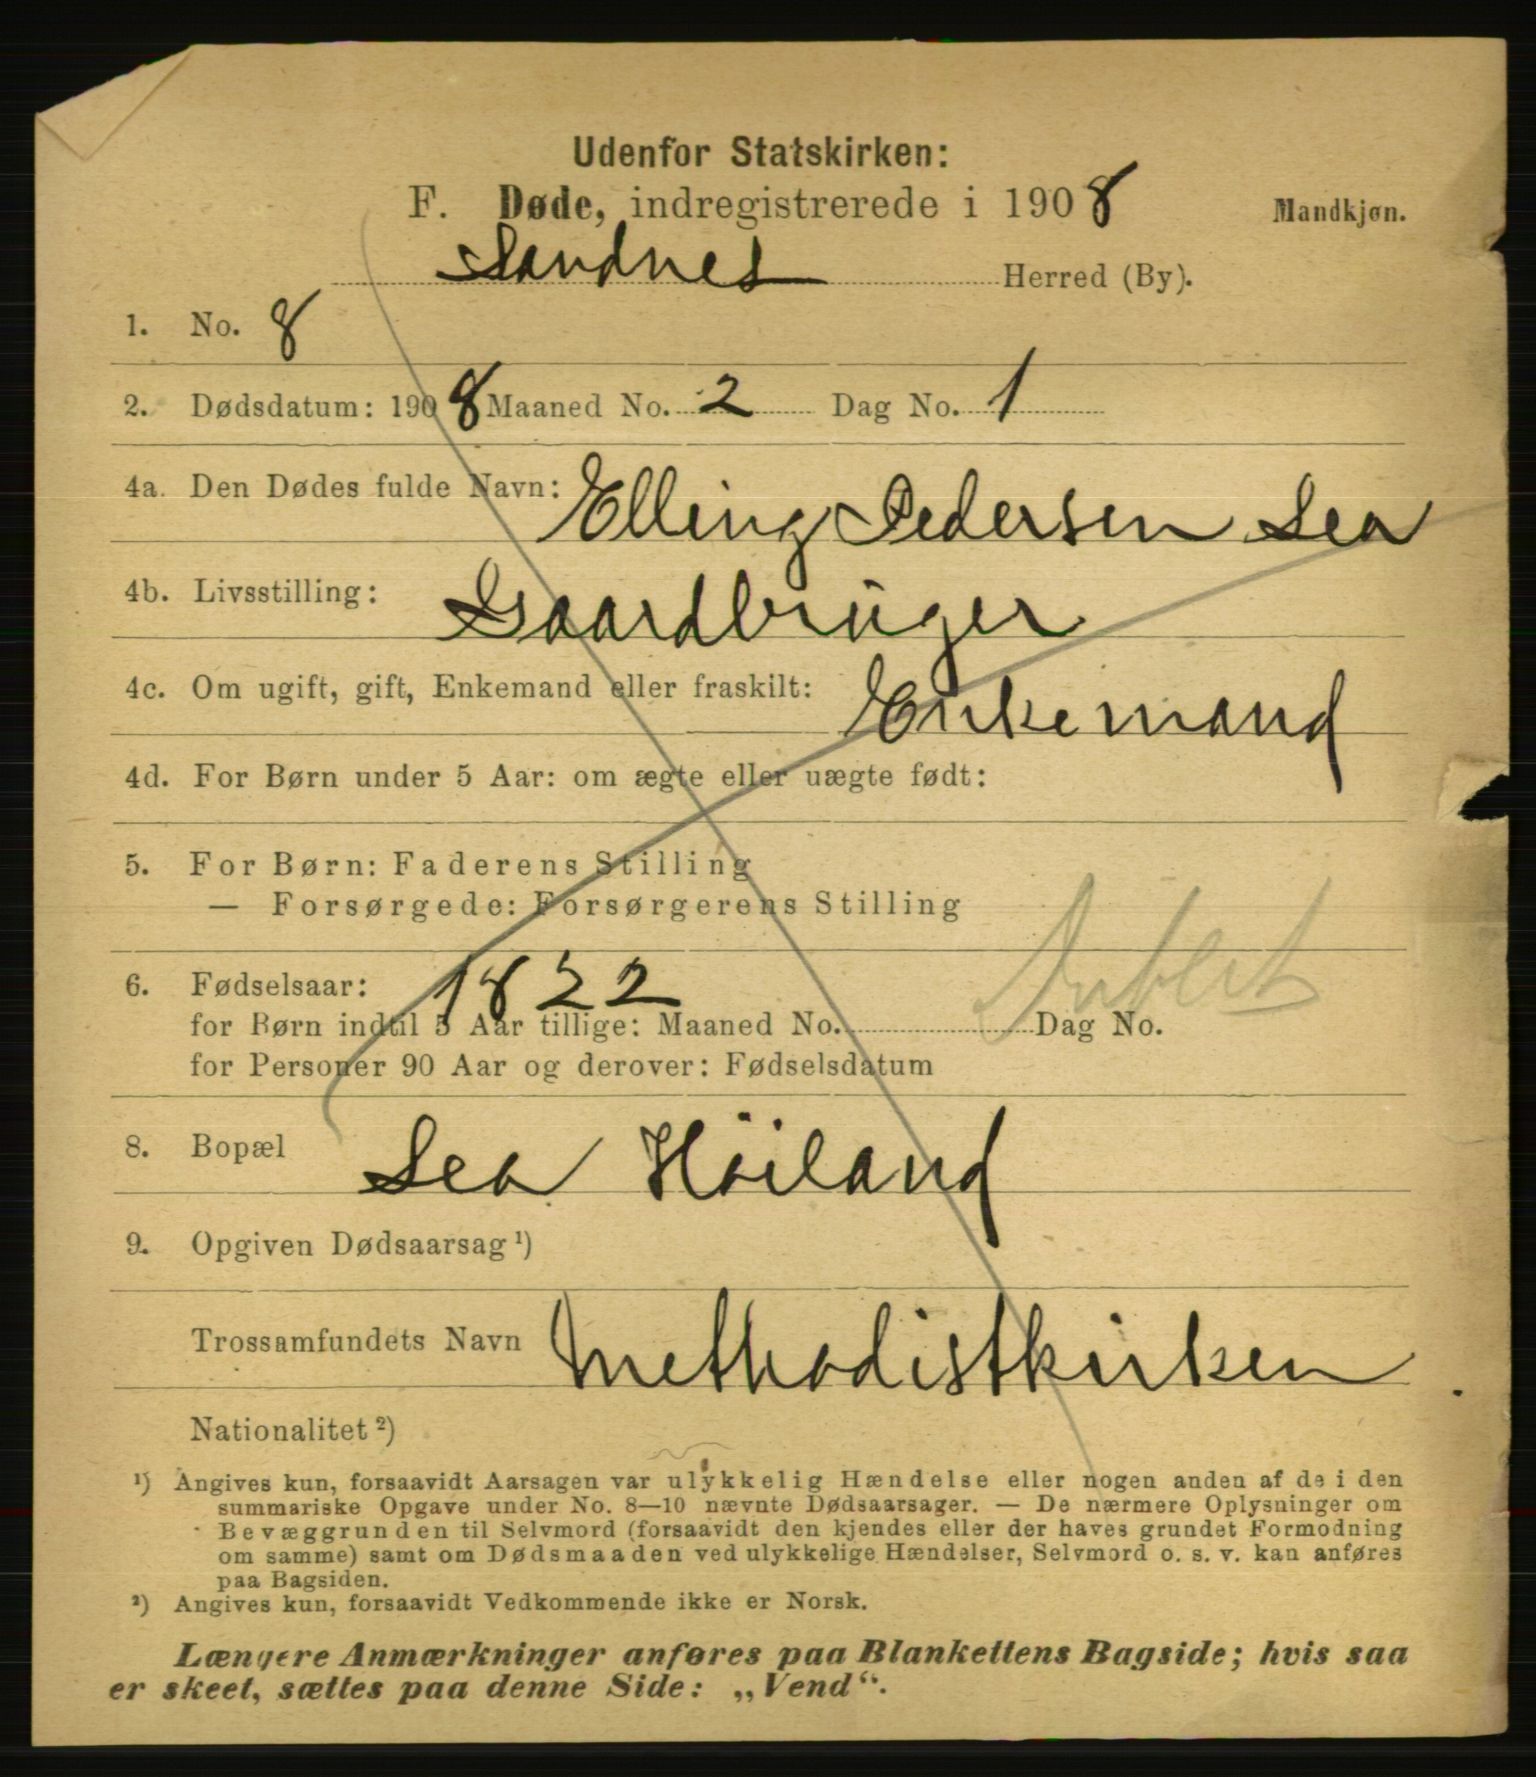 Udenfor Statskirken:
F. Døde, indregistrerede i 1908 Mandkjøn.
Sandnes Herred (By).
1. No. 8
2. Dødsdatum: 1908 Maaned No. 2 Dag No. 1
4a. Den Dødes fulde Navn: Elling Pedersen Lea
4b. Livsstilling: Gaardbruger
4c. Om ugift, gift, Enkemand eller fraskilt: Enkemand
4d. For Børn under 5 Aar: om ægte eller uægte født:
5. For Børn: Faderens Stilling
— Forsørgede: Forsørgerens Stilling
6. Fødselsaar: 1822
for Børn indtil 5 Aar tillige: Maaned No. Dag No.
for Personer 90 Aar og derover: Fødselsdatum
Dublet
8. Bopæl Lea Høiland
9. Opgiven Dødsaarsag ¹)
Trossamfundets Navn Methodistkirken
Nationalitet ²)
¹) Angives kun, forsaavidt Aarsagen var ulykkelig Hændelse eller nogen anden af de i den
summariske Opgave under No. 8—10 nævnte Dødsaarsager. — De nærmere Oplysninger om
Bevæggrunden til Selvmord (forsaavidt den kjendes eller der haves grundet Formodning
om samme) samt om Dødsmaaden ved ulykkelige Hændelser, Selvmord o. s. v. kan anføres
paa Bagsiden.
²) Angives kun, forsaavidt Vedkommende ikke er Norsk.
Længere Anmærkninger anføres paa Blankettens Bagside; hvis saa
er skeet, sættes paa denne Side: „Vend“.